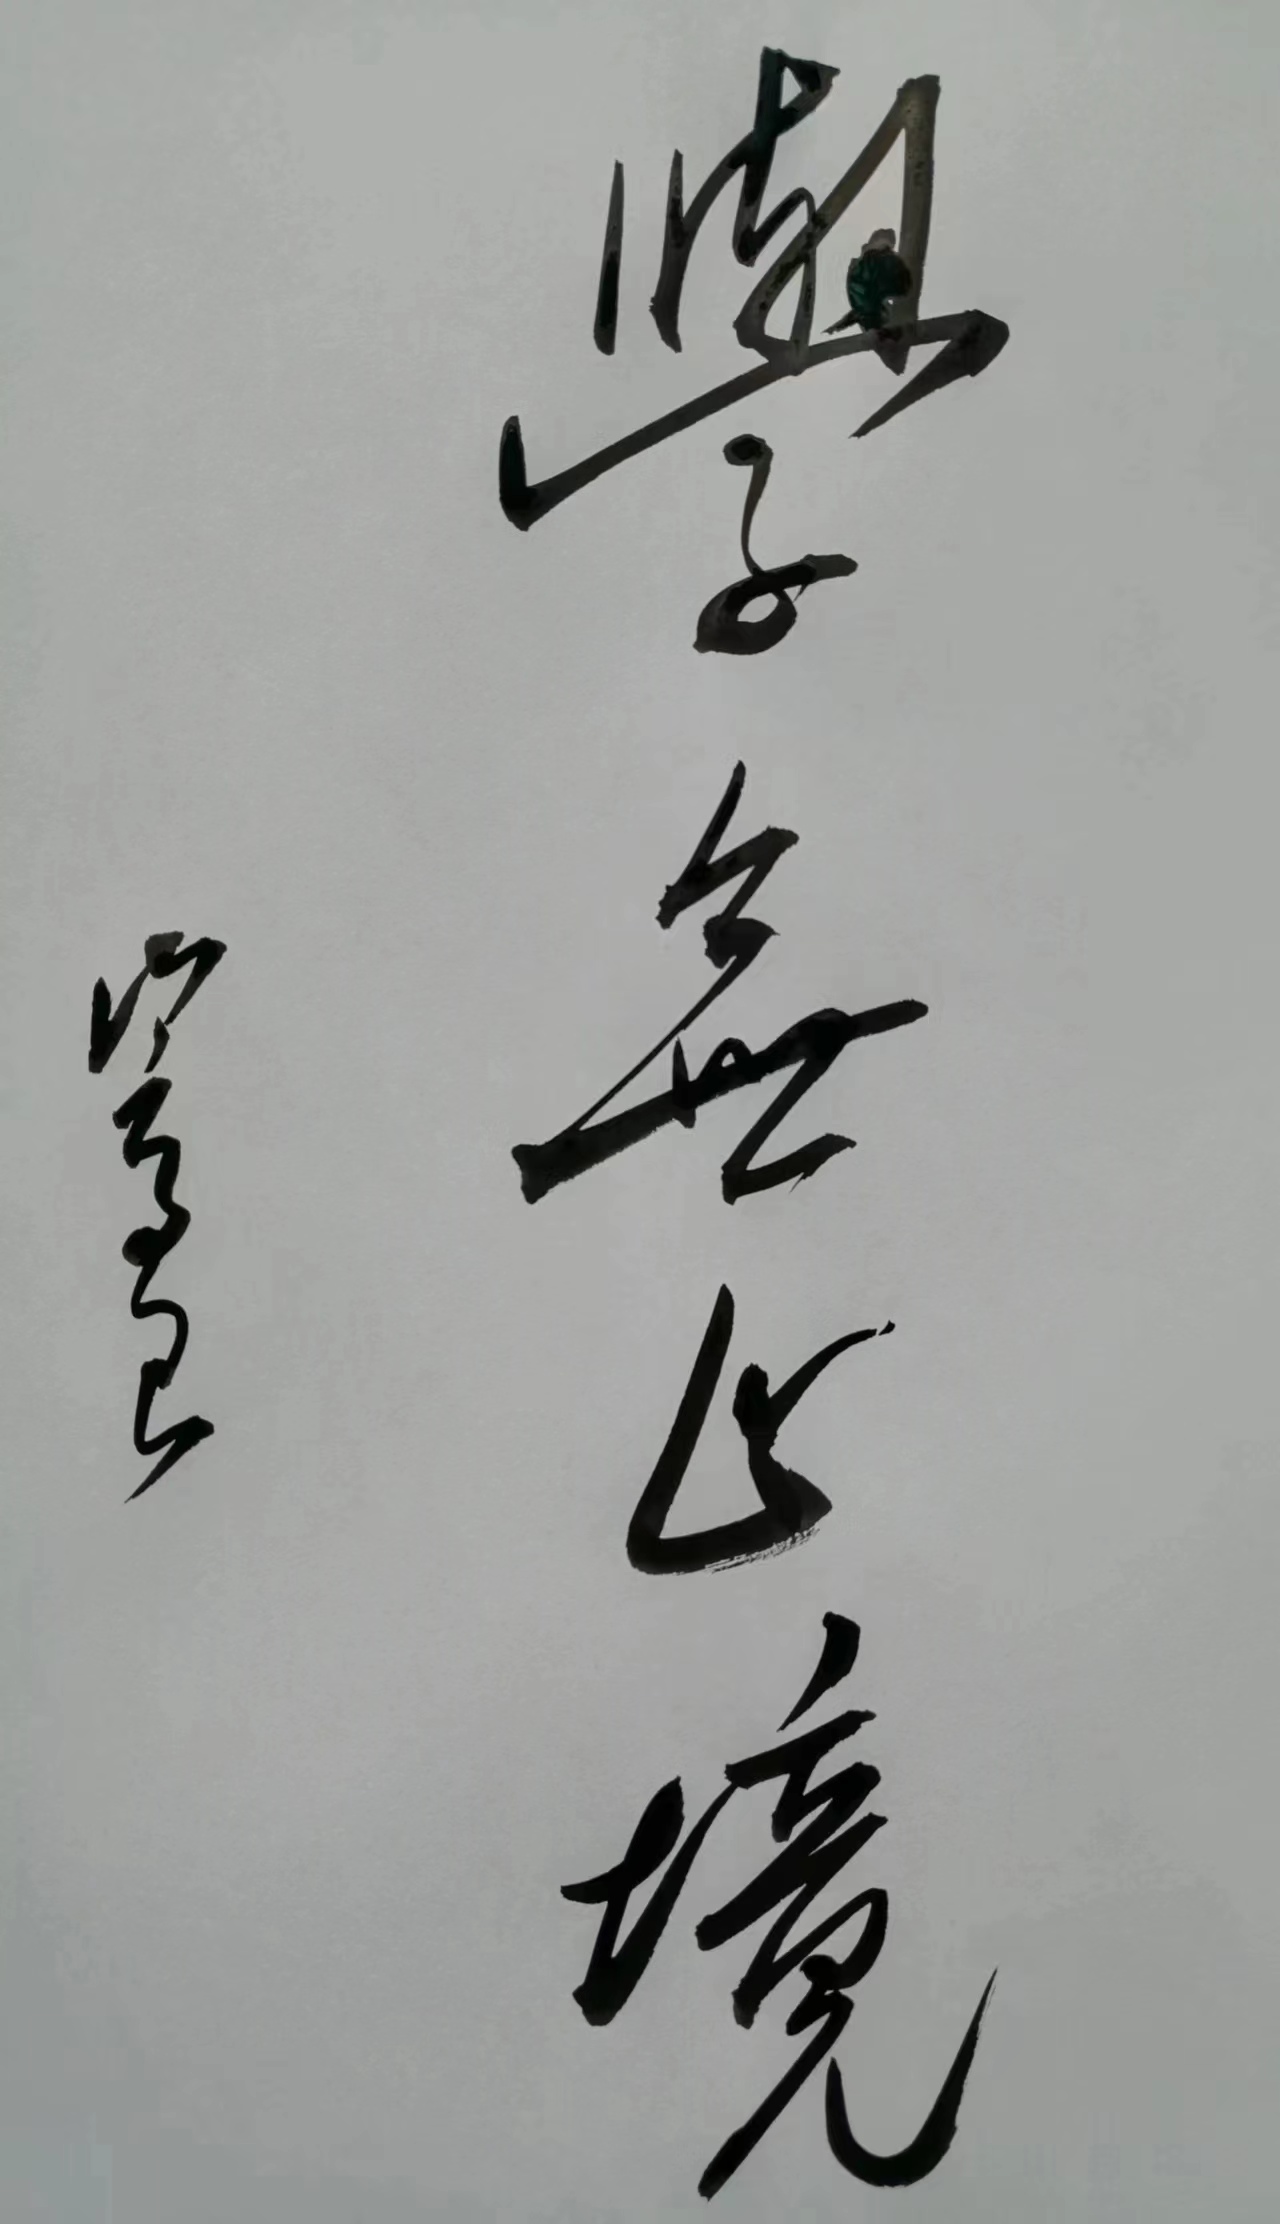 學無止境